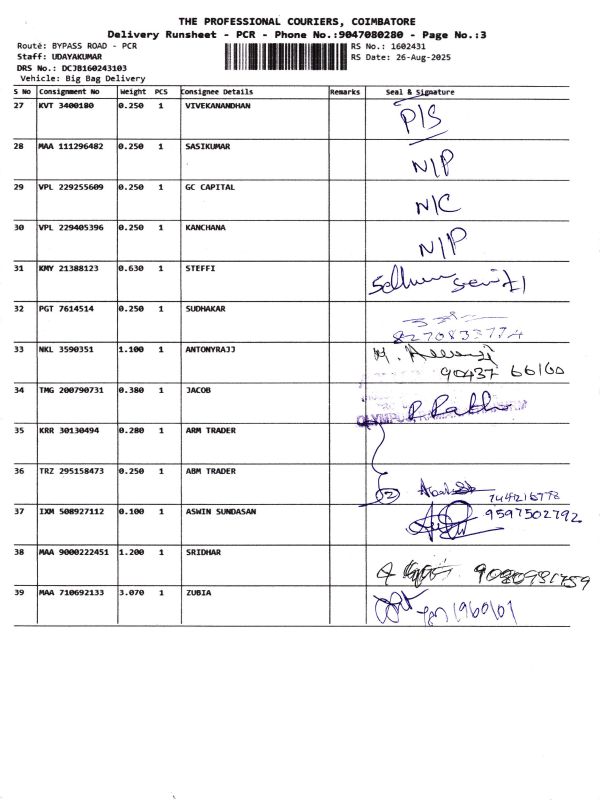 THE PROFESSIONAL COURIERS, COIMBATORE
Delivery Runsheet - PCR - Phone No.:9047080280 - Page No.:3
Route: BYPASS ROAD - PCR
RS No.: 1602431
Staff: UDAYAKUMAR
RS Date: 26-Aug-2025
DRS No.: DCJB160243103
Vehicle: Big Bag Delivery
S No Consignment No Weight PCS Consignee Details Remarks Seal & Signature
27 KVT 3400180 0.250 1 VIVEKANANDHAN P/S
28 MAA 111296482 0.250 1 SASIKUMAR N/P
29 VPL 229255609 0.250 1 GC CAPITAL N/C
30 VPL 229405396 0.250 1 KANCHANA N/P
31 KMY 21388123 0.630 1 STEFFI
32 PGT 7614514 0.250 1 SUDHAKAR
8270833774
33 NKL 3590351 1.100 1 ANTONYRAJJ
90437 66160
34 TMG 200790731 0.380 1 JACOB
35 KRR 30130494 0.280 1 ARM TRADER
36 TRZ 295158473 0.250 1 ABM TRADER
37 IXM 508927112 0.100 1 ASWIN SUNDASAN 9597502792
38 MAA 9000222451 1.200 1 SRIDHAR
39 MAA 710692133 3.070 1 ZUBIA